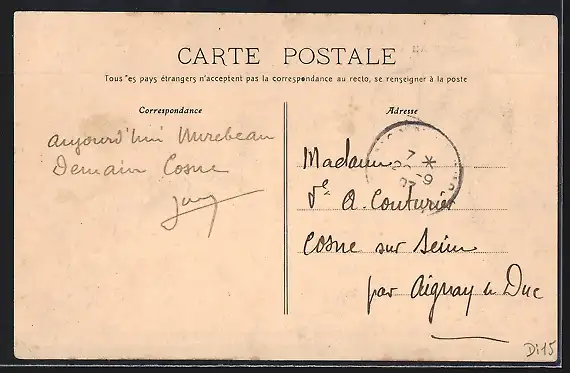 CARTE POSTALE
Tous les pays étrangers n'acceptent pas la correspondance au recto, se renseigner à la poste
Correspondance
Adresse
aujourd'hui Mirebeau
Demain Cosne
Madame
Ve A. Couturier
Cosne sur Seine
par Aignay le Duc
7 *
20-9
Di15